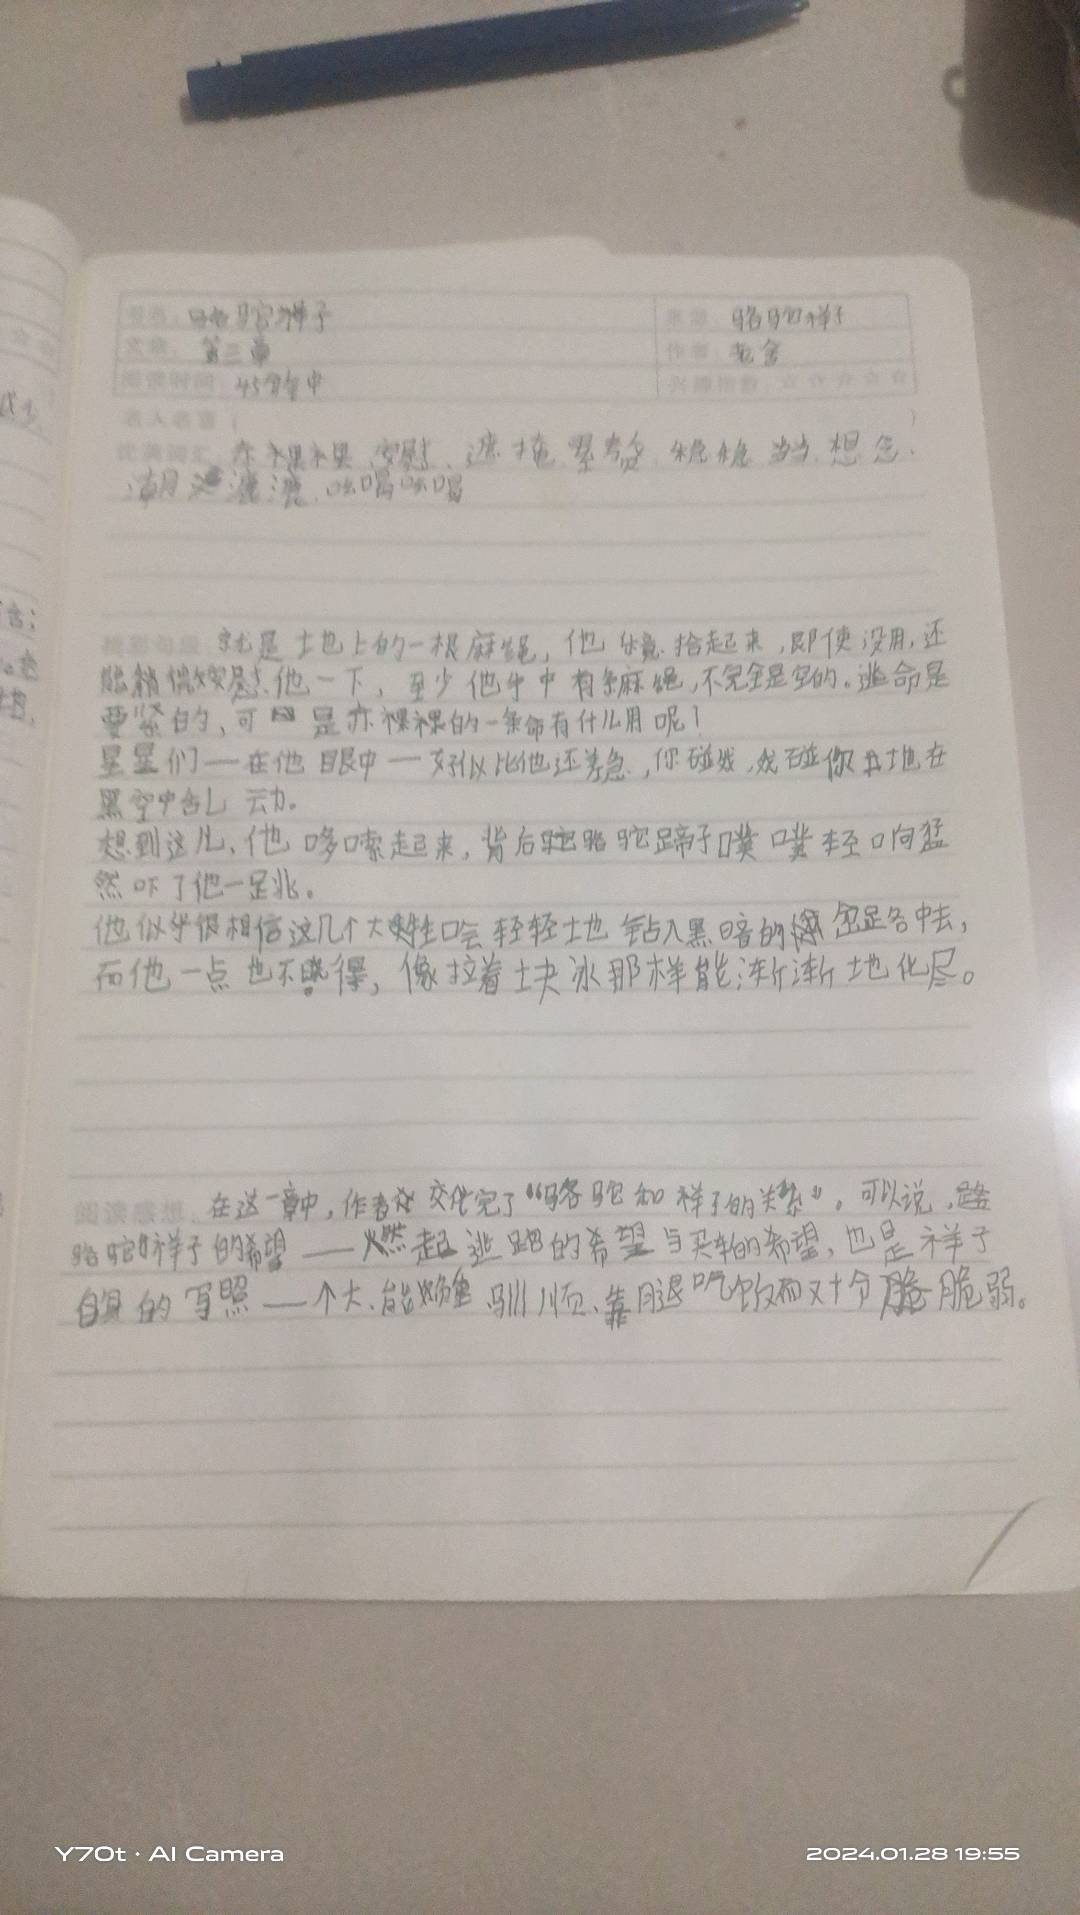 书名：骆驼祥子 来源：骆驼祥子
文章：第三章 作者：老舍
阅读时间：45分钟 兴趣指数：☆☆☆☆☆
名人名言（ ）
优美词汇：赤裸裸、安慰、遮掩、累赘、稳稳当当、想念、
吆喝吆喝
精彩句段：就是土地上的一根麻绳，他也拾起来，即使没用，还
能稍微安慰他一下，至少他手中有条麻绳，不完全是空的。逃命是
要紧的，可是赤裸裸的一条命有什么用呢！
星星们——在他眼中——好似比他还着急，你碰我，我碰你地在
黑空中乱动。
想到这儿，他哆嗦起来，背后骆驼蹄子噗噗轻响猛
然吓了他一跳。
他似乎很相信这几个大牲口会轻轻地钻入黑暗的中去，
而他一点也不晓得，像拉着块冰那样能渐渐地化尽。
阅读感想：在这一章中，作者交代完了“骆驼和祥子的关系”。可以说，
骆驼祥子的希望——燃起逃跑的希望与买车的希望，也是祥子
自身的写照——个大、能、驯顺、靠腿吃饭而又十分脆弱。
Y70t · AI Camera 2024.01.28 19:55